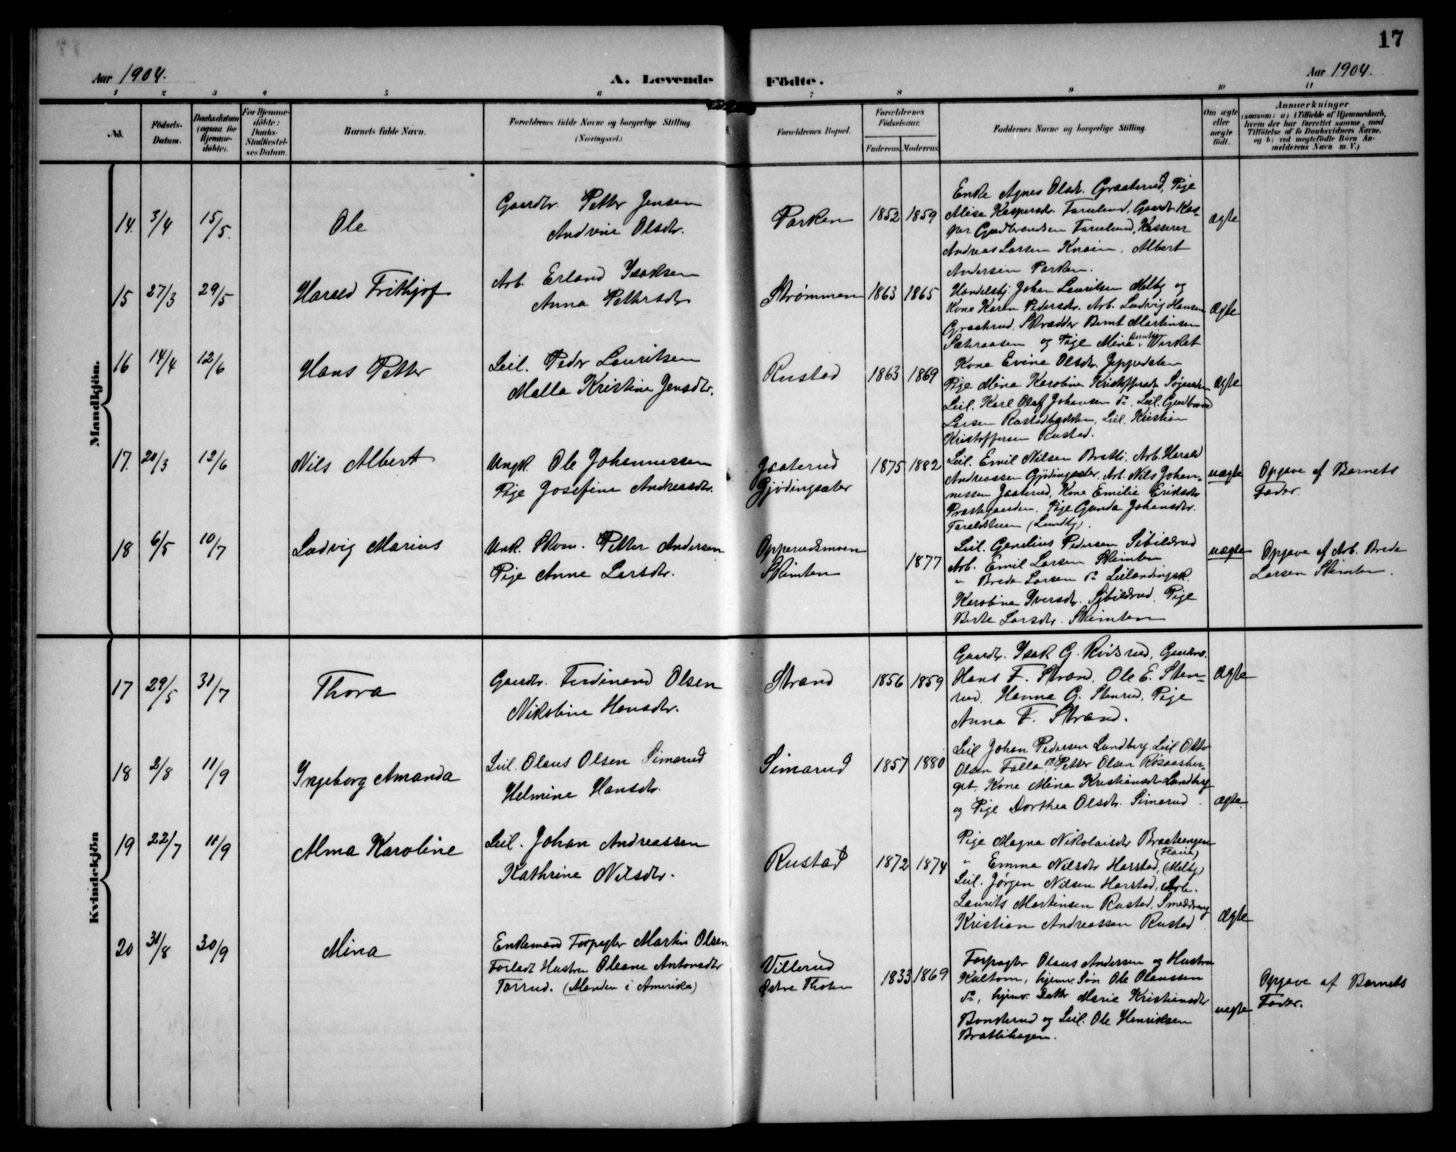 17
Aar 1904. A. Levende Fødte. Aar 1904.
1 2 3 4 5 6 7 8 9 10 11
No.
Fødsels-
Datum.
Daabsdatum
(ogsaa for
Hjemme-
døbte).
For Hjemme-
døbte:
Daabs-
Stadfæstel-
ses Datum.
Barnets fulde Navn.
Forældrenes fulde Navne og borgerlige Stilling
Forældrenes Bopæl.
Forældrenes
Fødselsaar.
Faderens. Moderens.
Faddernes Navne og borgerlige Stilling.
Om ægte
eller
uægte
født.
Anmærkninger
(saasom: a) i Tilfælde af Hjemmedaab,
hvem der har forrettet samme, med
Tilføielse af to Daabsvidners Navne.
og b) ved uægtefødte Børn An-
melderens Navn m. V.)
Mandkjøn.
14. 3/4 15/5. Ole
Gaardbr. Petter Jensen
Andrine Olsdr.
Parken 1852 1859
Enke Agnes Olsdr. Graaterud, Pige
Alise Kaspersdr Farulund, Gaardbr. Kas-
per Gudbrandsen Farulund, Kasserer
Andreas Larsen Knain, Albert
Andersen Parken.
Ægte
15 27/3 29/5 Harald Frithjof
Arb. Erland Isaksen
Anna Pettersdr
Strømmen 1863 1865
Handelsbj. Johan Lauritsen Melby og
Kone Karen Pedersdr. Arb. Ludvig Hansen
Graaterud, Skrædder Bernt Martinsen
Sætraasen og Pige Mina Værket
Ægte
16 14/4 12/6 Hans Petter
Leil. Peder Lauritsen
Malla Kristine Jensdtr.
Rustad 1863 1869
Kone Evine Olsdr
Pige Mina Karoline Kristoffersdr
Leil. Karl Olaf Johansen Leil. Gudbrand
Larsen Rustadbakken, Leil. Kristian
Kristoffersen Rustad.
Ægte
17. 20/3 12/6 Nils Albert
Ungk. Ole Johannessen
Pige Josefine Andreasdtr.
Jaaterud
Gjødingsæter
1875 1882
Leil. Emil Nilsen Bratli. Arb. Harald
Andreassen Gjødingsæter. Arb. Nils Johan-
nessen Jaaterud, Kone Emilie Eriksdr
Præstegaarden. Pige Gunda Johansdtr.
(Lundby).
uægte
Opgave af Barnets
Fader.
18 6/5 10/7 Ludvig Marius
Unk. Skom. Petter Andersen
Pige Anne Larsdtr.
Opperudsmoen
Skimten
1877
Leil. Cornelius Pedersen Sibilerud
Arb. Emil Larsen Skimten
" Brede Larsen
Karoline Iversdr. Sibilerud. Pige
Berte Larsdr. Skimten
uægte
Opgave af Arb. Brede
Larsen Skimten.
Kvindekjøn
17 29/5 31/7 Thora
Gaardbr. Ferdinand Olsen
Nikoline Hansdtr.
Strand 1856 1859
Gaardbr. Isak G. Rudsrud, Gaardbr.
Hans F. Strand, Ole E. Sten-
rud, Hanna G. Stenrud, Pige
Anna F. Strand.
Ægte
18 2/8 11/9 Ingeborg Amanda
Leil. Olaus Olsen Simarud
Helmine Hansdtr.
Simarud 1857 1880
Leil Johan Pedersen Lundberg, Leil Otto
Olsen Falla, Petter Olsen
Kone Mina Kristiansdr Lundberg
og Pige Dorthea Olsdtr. Simarud.
Ægte
19 22/7 11/9 Alma Karoline
Leil. Johan Andreassen
Kathrine Nilsdtr.
Rustad 1872 1874
Pige Magna Nikolaisdr Braatengen
" Emma Nilsdtr Harstad, (Melby)
Leil. Jørgen Nilsen Harstad, Arb.
Laurits Martinsen Rustad,
Kristian Andreassen Rustad
Ægte
20 31/8 30/9 Mina
Enkemand Forpagter Martin Olsen
Forladt Hustru Oleane Antonsdtr
Torrud. (Manden i Amerika)
Villerud
Østre Tholen
1833 1869
Forpagter Olaus Andersen og Hustru
Kultom, hjemv. Søn Ole Olaussen
hjemv. Datter Marie Kristiansdtr
Bonderud og Leil. Ole Henriksen
Brattihagen.
uægte
Opgave af Barnets
Fader.